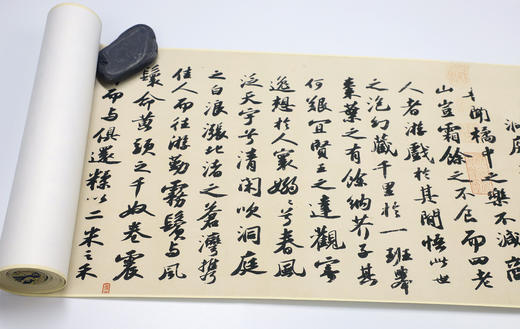 洞庭
吾聞橘中之樂不減商
山豈霜餘之不食而四老
人者遊戲於其間悟此世
之泡幻藏千里於一班舉
棗葉之有餘納芥子其
何艱宜賢王之達觀寄
逸想於人寰嫋〻兮春風
泛天宇兮清閑吹洞庭
之白浪漲北渚之蒼灣攜
佳人而往游勤霧鬢與風
鬟命黃頭之千奴卷震
而與俱還糅以二米之禾